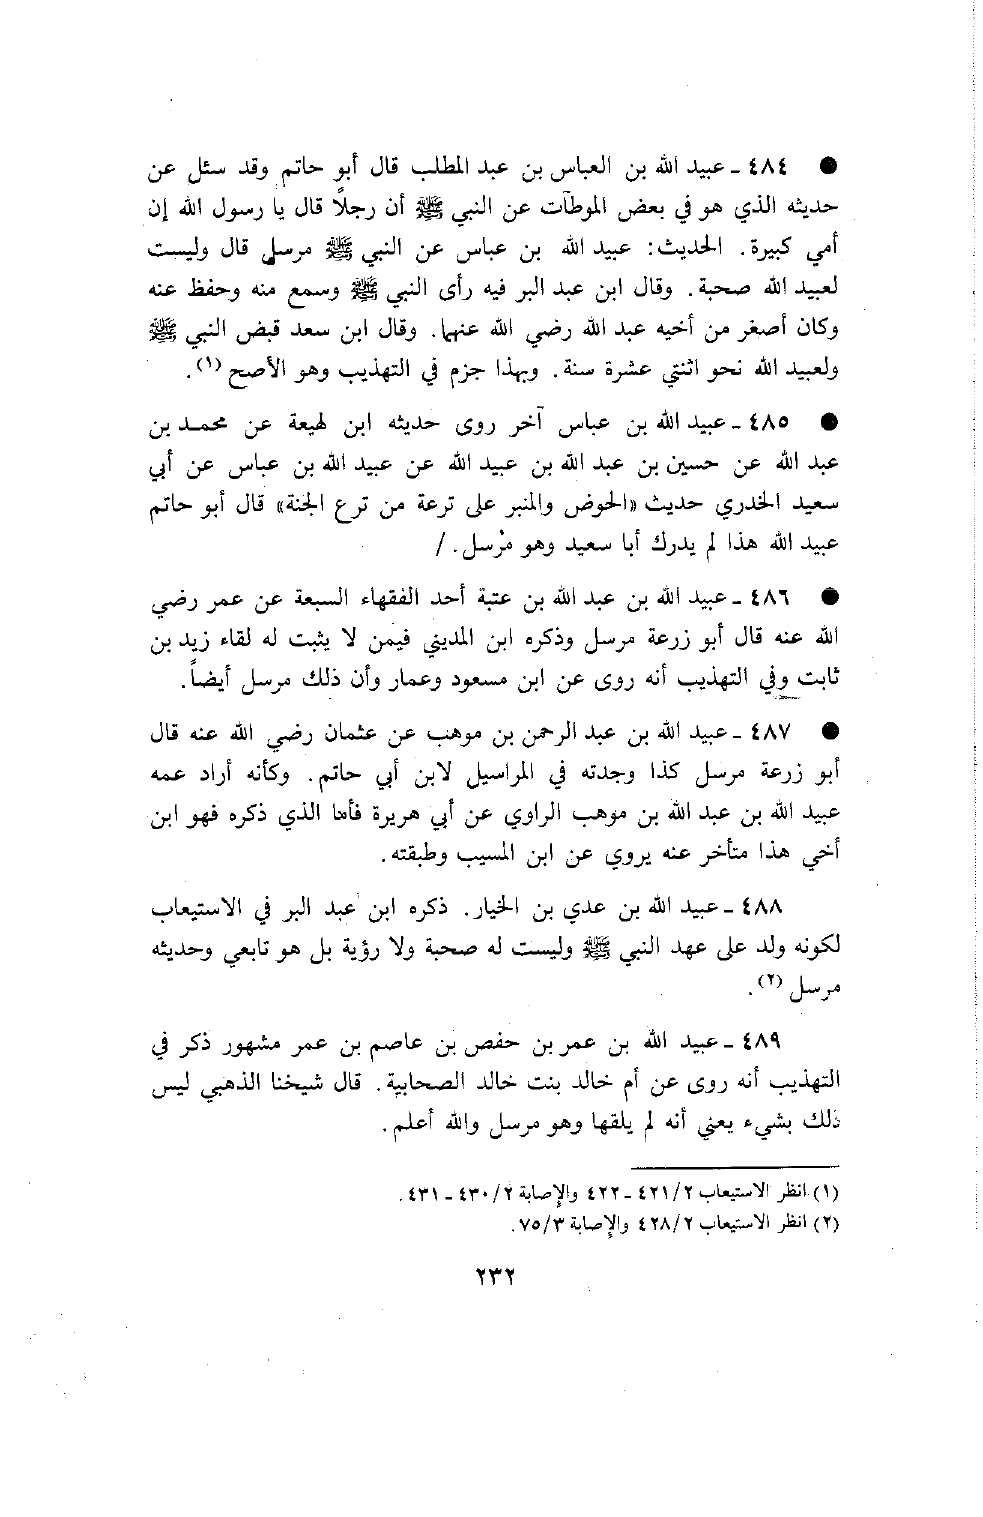 ● ٤٨٤ ـ عبيد الله بن العباس بن عبد المطلب قال أبو حاتم وقد سئل عن
حديثه الذي هو في بعض الموطآت عن النبي ﷺ أن رجلاً قال يا رسول الله إن
أمي كبيرة. الحديث: عبيد الله بن عباس عن النبي ﷺ مرسل قال وليست
لعبيد الله صحبة. وقال ابن عبد البر فيه رأى النبي ﷺ وسمع منه وحفظ عنه
وكان أصغر من أخيه عبد الله رضي الله عنهما. وقال ابن سعد قبض النبي ﷺ
ولعبيد الله نحو اثنتي عشرة سنة. وبهذا جزم في التهذيب وهو الأصح (١).
● ٤٨٥ ـ عبيد الله بن عباس آخر روى حديثه ابن لهيعة عن محمد بن
عبد الله عن حسين بن عبد الله بن عبيد الله عن عبيد الله بن عباس عن أبي
سعيد الخدري حديث «الحوض والمنبر على ترعة من ترع الجنة» قال أبو حاتم
عبيد الله هذا لم يدرك أبا سعيد وهو مرسل. /
● ٤٨٦ ـ عبيد الله بن عبد الله بن عتبة أحد الفقهاء السبعة عن عمر رضي
الله عنه قال أبو زرعة مرسل وذكره ابن المديني فيمن لا يثبت له لقاء زيد بن
ثابت وفي التهذيب أنه روى عن ابن مسعود وعمار وأن ذلك مرسل أيضاً.
● ٤٨٧ ـ عبيد الله بن عبد الرحمن بن موهب عن عثمان رضي الله عنه قال
أبو زرعة مرسل كذا وجدته في المراسيل لابن أبي حاتم. وكأنه أراد عمه
عبيد الله بن عبد الله بن موهب الراوي عن أبي هريرة فأما الذي ذكره فهو ابن
أخي هذا متأخر عنه يروي عن ابن المسيب وطبقته.
٤٨٨ ـ عبيد الله بن عدي بن الخيار. ذكره ابن عبد البر في الاستيعاب
لكونه ولد على عهد النبي ﷺ وليست له صحبة ولا رؤية بل هو تابعي وحديثه
مرسل (٢).
٤٨٩ ـ عبيد الله بن عمر بن حفص بن عاصم بن عمر مشهور ذكر في
التهذيب أنه روى عن أم خالد بنت خالد الصحابية. قال شيخنا الذهبي ليس
ذلك بشيء يعني أنه لم يلقها وهو مرسل والله أعلم.
(١) انظر الاستيعاب ٢/ ٤٢١ ـ ٤٢٢ والإصابة ٢/ ٤٣٠ ـ ٤٣١.
(٢) انظر الاستيعاب ٢/ ٤٢٨ والإصابة ٣/ ٧٥.
٢٣٢